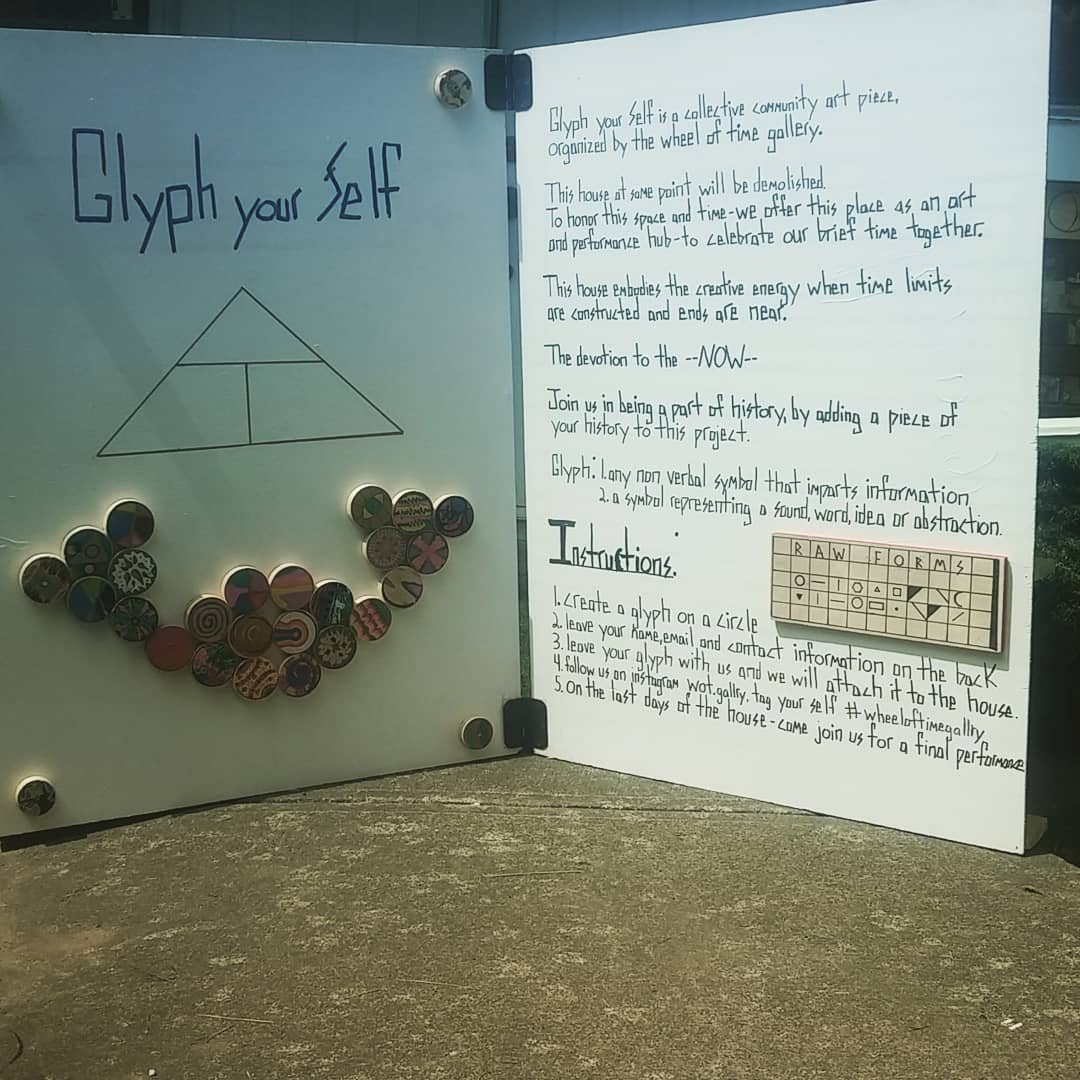 Glyph your Self
Glyph your Self is a collective community art piece,
organized by the wheel of time gallery.
This house at some point will be demolished.
To honor this space and time-we offer this place as an art
and performance hub-to celebrate our brief time together.
This house embodies the creative energy when time limits
are constructed and ends are near.
The devotion to the --NOW--
Join us in being a part of history, by adding a piece of
your history to this project.
Glyph: 1. any non verbal symbol that imparts information
2. a symbol representing a sound, word, idea or abstraction.
Instructions:
RAW FORMS
1. create a glyph on a circle
2. leave your name, email and contact information on the back
3. leave your glyph with us and we will attach it to the house.
4. follow us on instagram wot.gallry. tag your self #wheeloftimegallry
5. On the last days of the house-come join us for a final performance